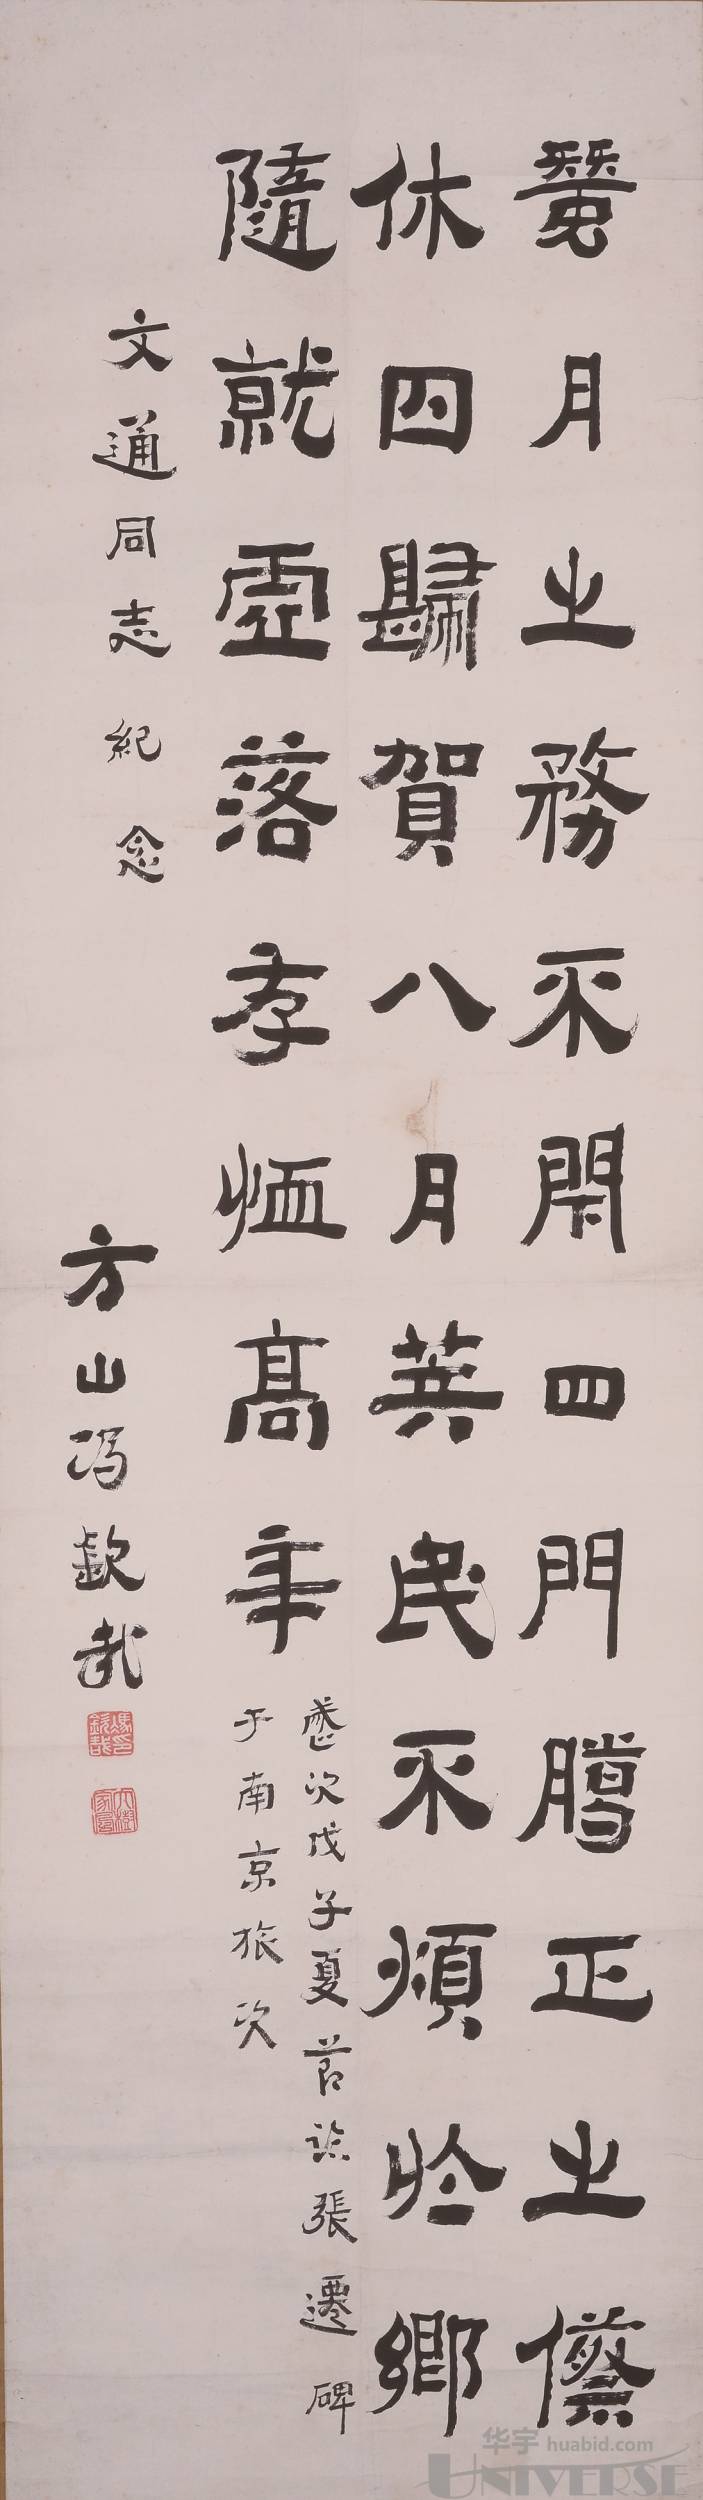 蠶月之務不閉四門臘正之傺
休囚歸賀八月筭民不煩於鄉
隨就虛落存恤高年
歲次戊子夏節臨張遷碑
于南京旅次
文通同志紀念
方山馮欽哉
馮欽哉印
大樹家風
华宇 huabid.com
UNIVERSE